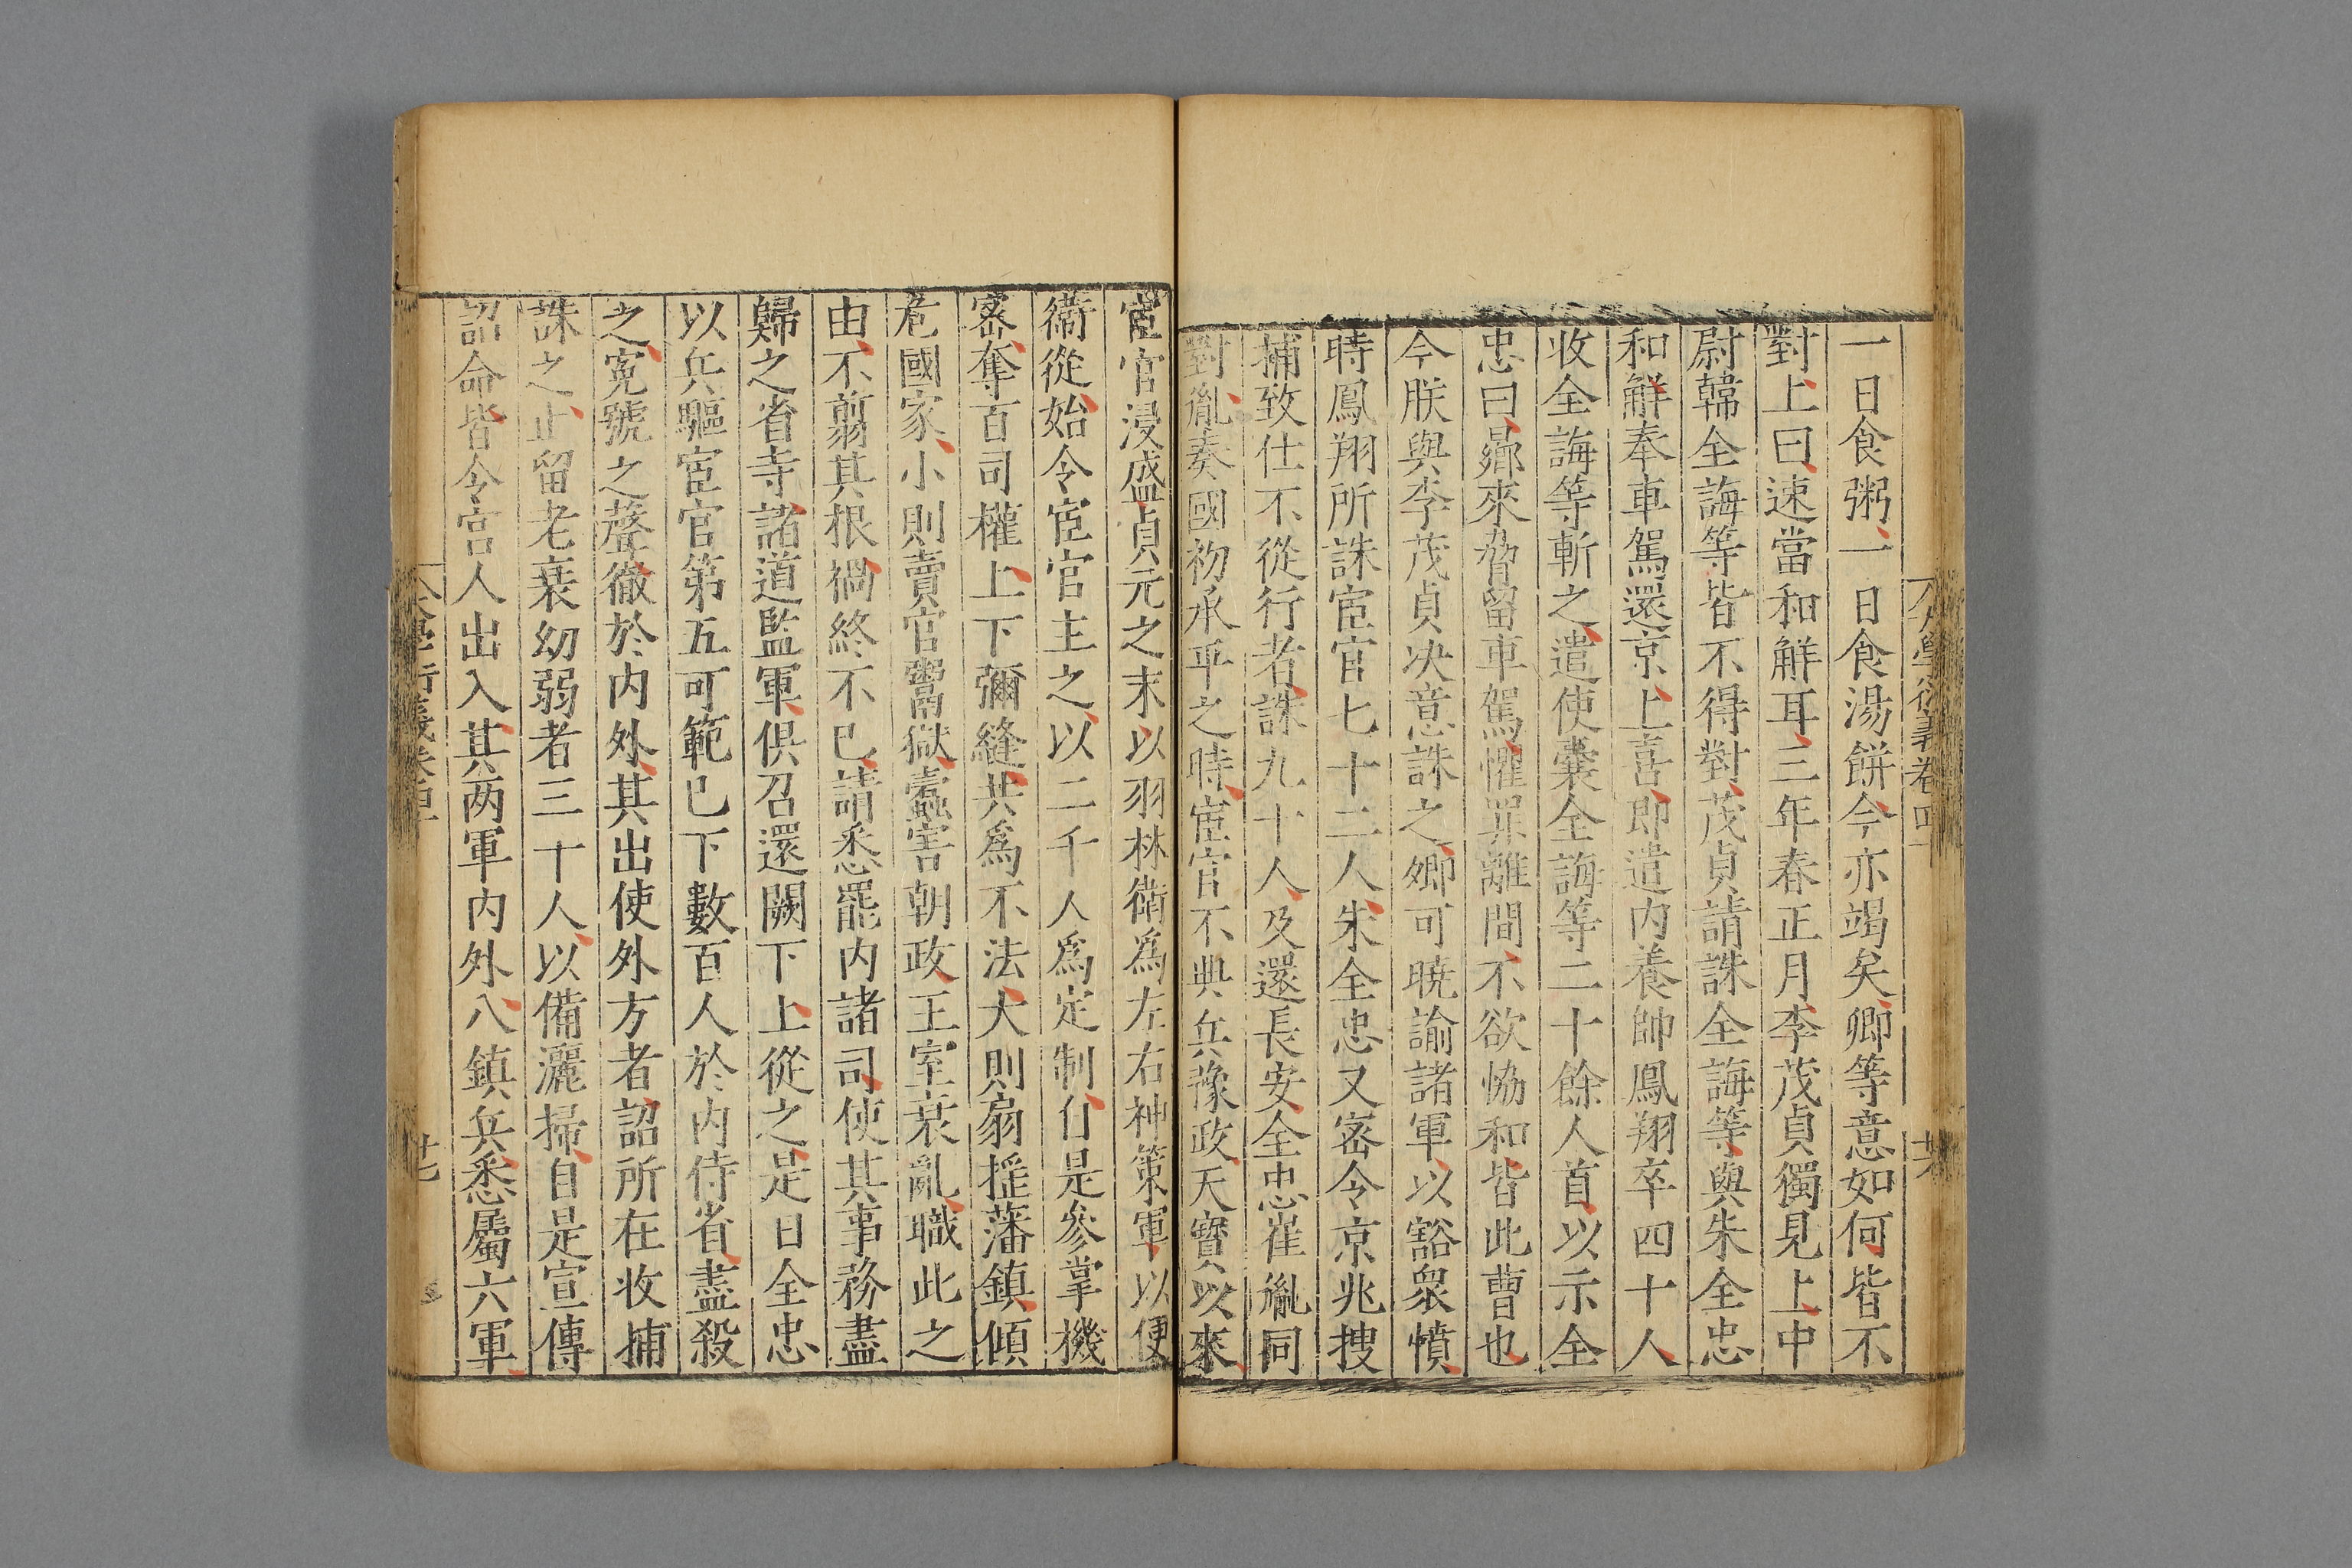 大學衍義卷四十
廿六
一日食粥一日食湯餅今亦竭矣卿等意如何皆不
對上曰速當和解耳三年春正月李茂貞獨見上中
尉韓全誨等皆不得對茂貞請誅全誨等與朱全忠
和解奉車駕還京上喜即遣内養帥鳳翔卒四十人
收全誨等斬之遣使囊全誨等二十餘人首以示全
忠曰曏來脅留車駕懼罪離間不欲恊和皆此曹也
今朕與李茂貞决意誅之卿可曉諭諸軍以豁衆憤
時鳳翔所誅宦官七十二人朱全忠又宻令京兆捜
捕致仕不從行者誅九十人及還長安全忠崔胤同
對胤奏國初承平之時宦官不典兵豫政天寶以來
宦官浸盛貞元之末以羽林衛爲左右神策軍以便
衞從始令宦官主之以二千人爲定制自是參掌機
宻奪百司權上下彌縫共爲不法大則扇揺藩鎮傾
危國家小則賣官鬻獄蠧害朝政王室衰亂職此之
由不翦其根禍終不已請悉罷内諸司使其事務盡
歸之省寺諸道監軍俱召還闕下上從之是日全忠
以兵驅宦官第五可範已下數百人於内侍省盡殺
之寃號之聲徹於内外其出使外方者詔所在收捕
誅之止留老衰幼弱者三十人以備灑掃自是宣傳
詔命皆令宫人出入其两軍内外八鎮兵悉屬六軍
大學衍義卷四十
廿七